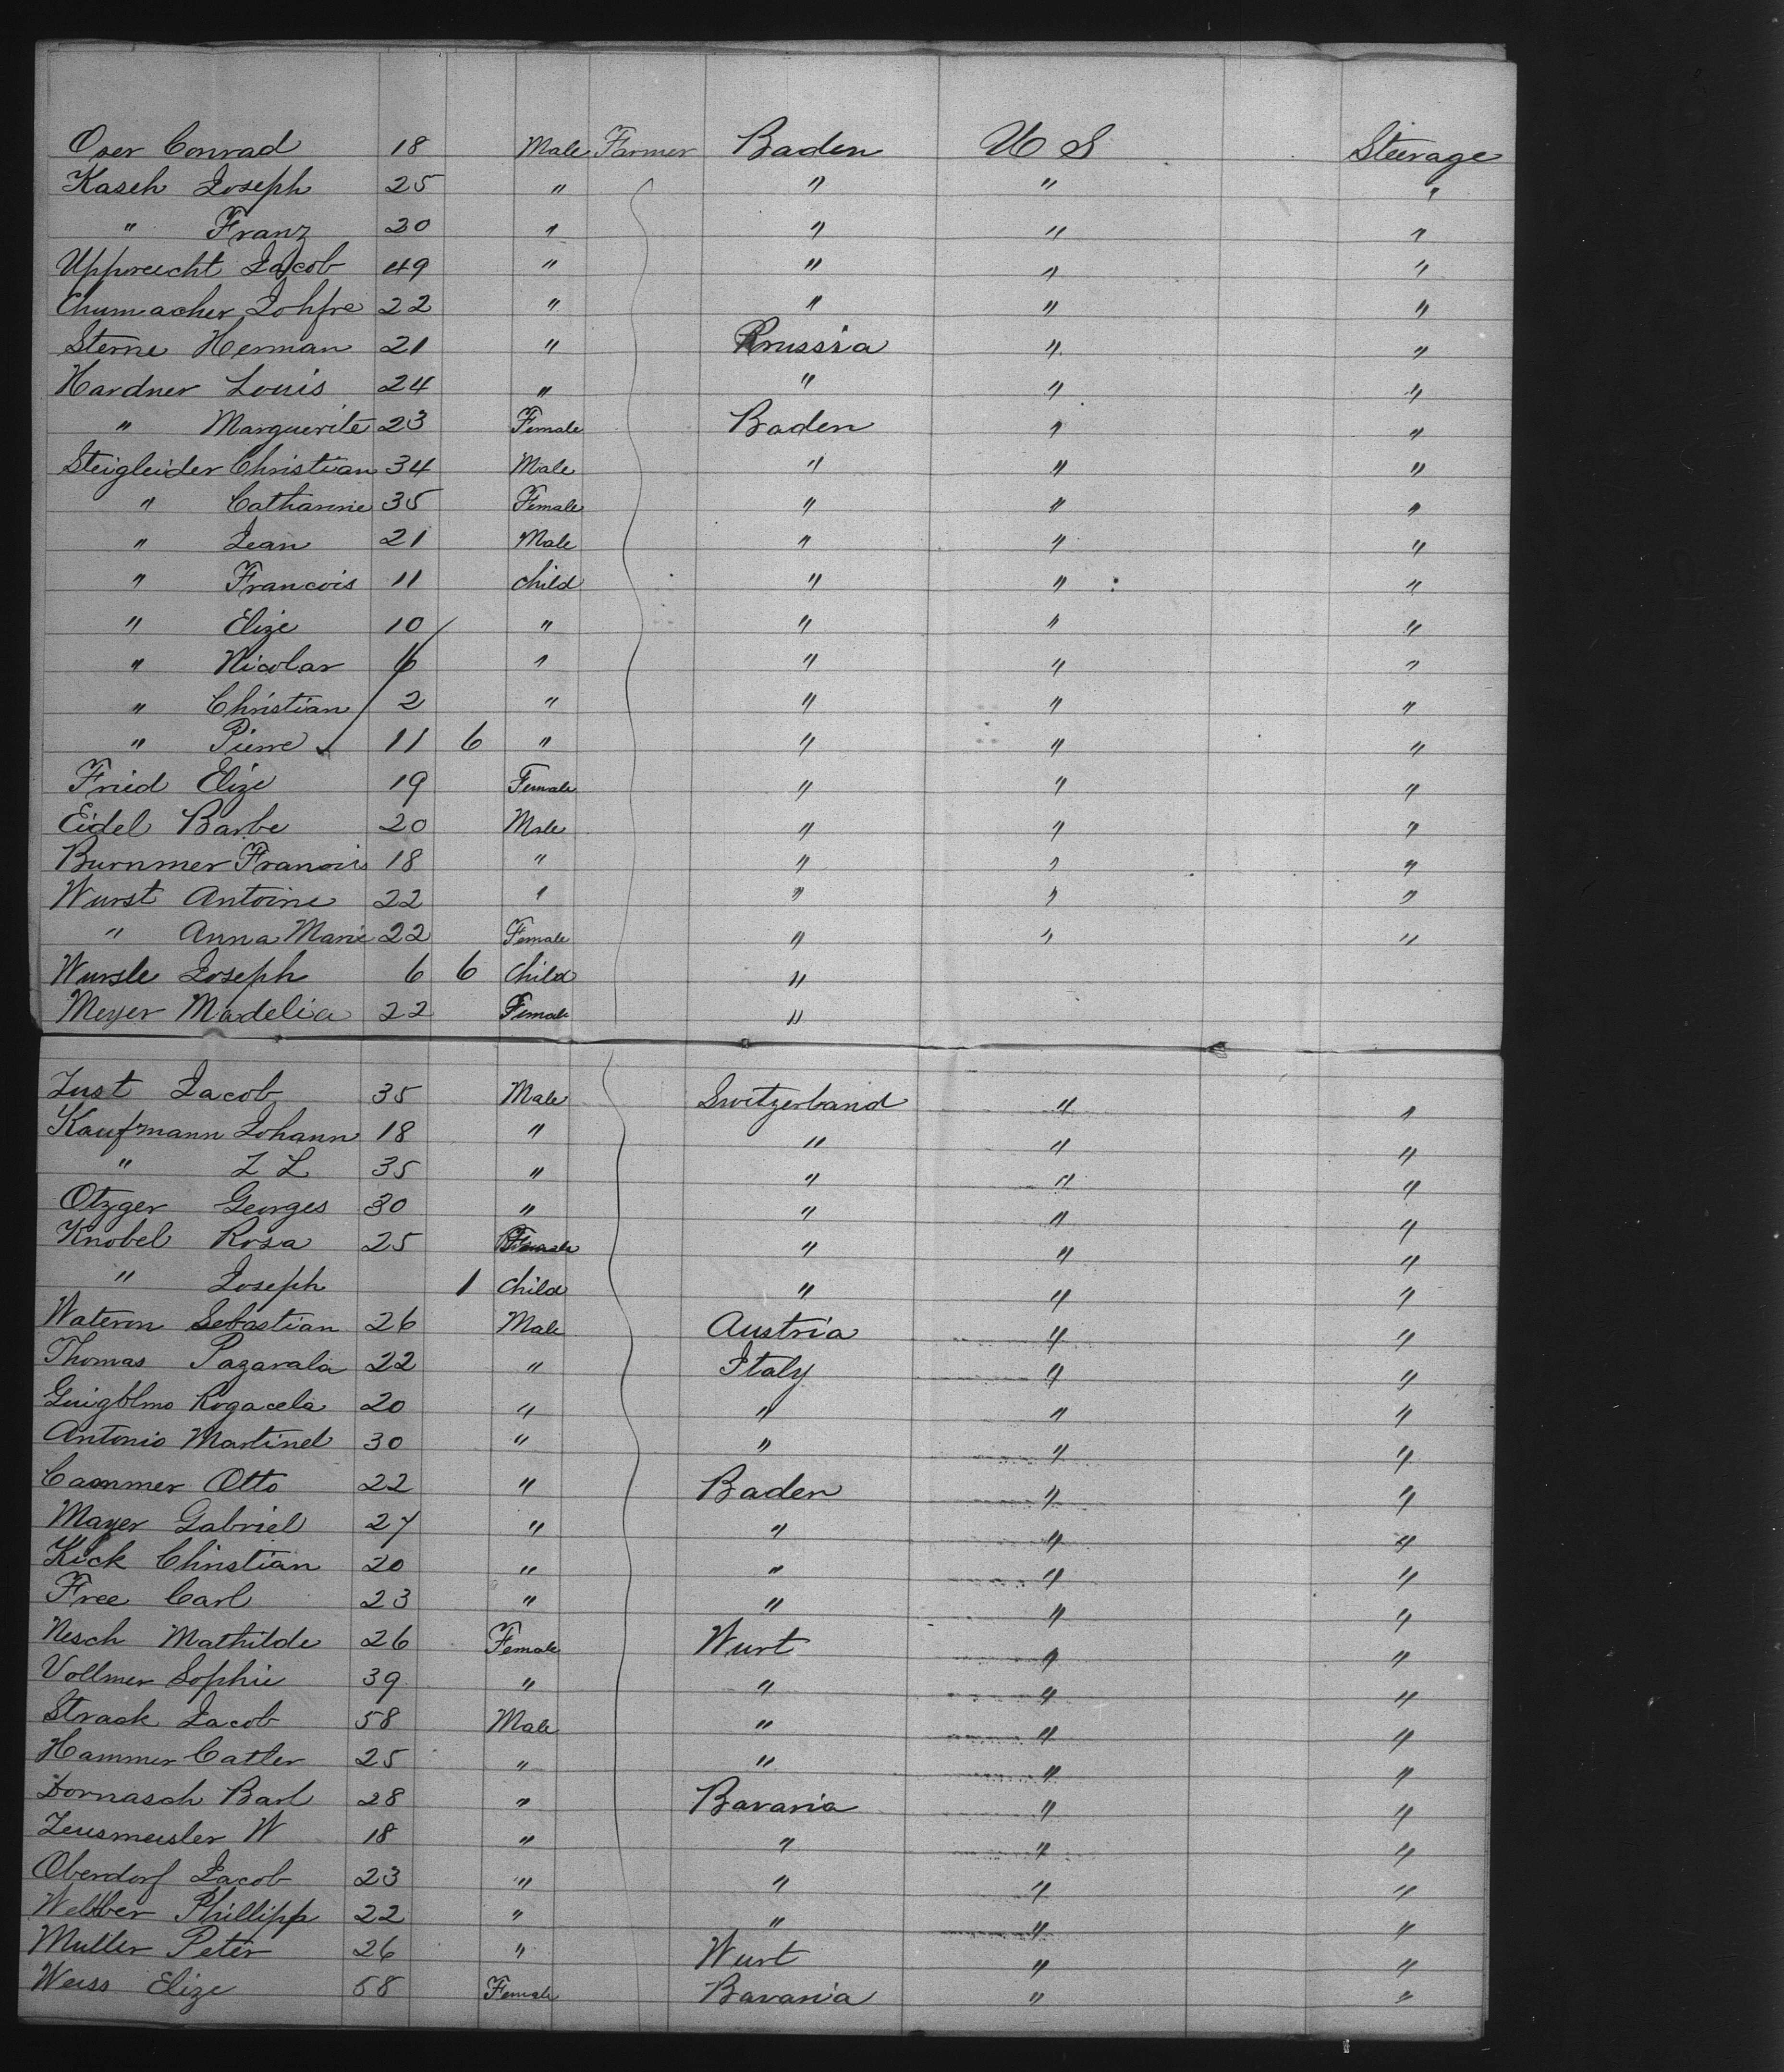 Oser Conrad 18 Male Farmer Baden U S Steerage
Kasch Joseph 25 " " " "
" Franz 20 " " " "
Uppreicht Jacob 49 " " " "
Chumacher Johpre 22 " " " "
Sterne Herman 21 " Prussia " "
Hardner Louis 24 " " " "
" Marguerite 23 Female Baden " "
Steigleider Christian 34 Male " " "
" Catharine 35 Female " " "
" Jean 21 Male " " "
" Francois 11 child " " "
" Elize 10 " " " "
" Nicolar 6 " " " "
" Christian 2 " " " "
" Pierre 11 6 " " " "
Fried Elize 19 Female " " "
Eidel Barbe 20 Male " " "
Burnmer Francois 18 " " " "
Wurst Antoine 22 " " " "
" Anna Marie 22 Female " " "
Wursle Joseph 6 6 Child "
Meyer Madelia 22 Female "
Just Jacob 35 Male Switzerland " "
Kaufmann Johann 18 " " " "
" J L 35 " " " "
Otzger Georges 30 " " " "
Knobel Rosa 25 Female " " "
" Joseph 1 Child " " "
Wateron Sebastian 26 Male Austria " "
Thomas Pagavala 22 " Italy " "
Rogacela 20 " " " "
Antonio Martinel 30 " " " "
Cammer Otto 22 " Baden " "
Mayer Gabriel 27 " " " "
Kick Christian 20 " " " "
Free Carl 23 " " " "
Nesch Mathilde 26 Female Wurt " "
Vollmer Sophie 39 " " " "
Strack Jacob 58 Male " " "
Hammer Catler 25 " " " "
Dornasch Barl 28 " Bavaria " "
Zeusmeisler W 18 " " " "
Oberdorf Jacob 23 " " " "
Welber Phillipp 22 " " " "
Muller Peter 26 " Wurt " "
Weiss Elize 58 Female Bavaria " "